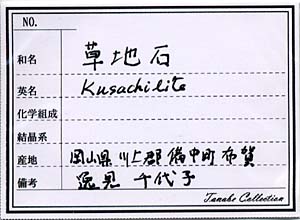 NO.
和名 草地石
英名 Kusachilite
化学組成
結晶系
産地 岡山県川上郡備中町布賀
備考 逸見千代子
Tanabe Collection